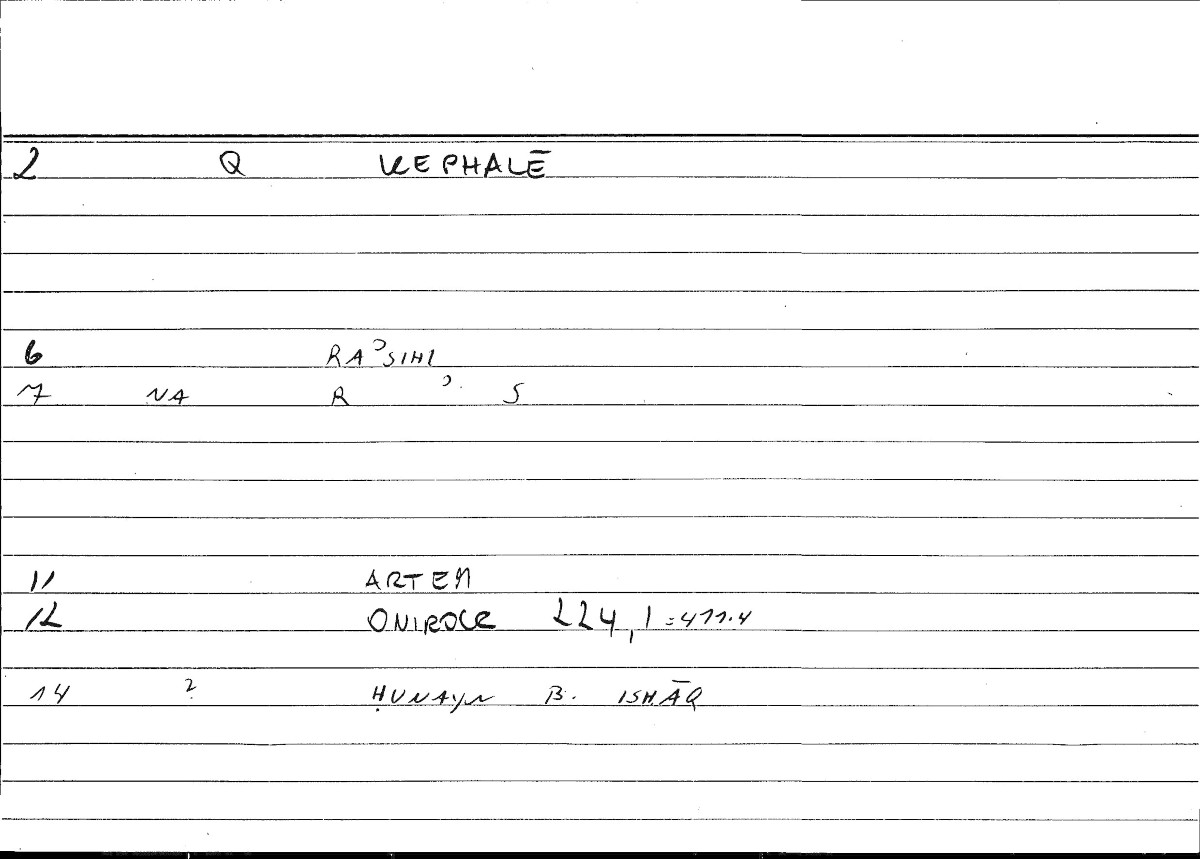 2 Q KEPHALĒ
6 RAʾSIHI
7 NA R ʾ. S
11 ARTEM
12 ONIROCR 224,1=411.4
14 ? ḤUNAYN B. ISḤĀQ